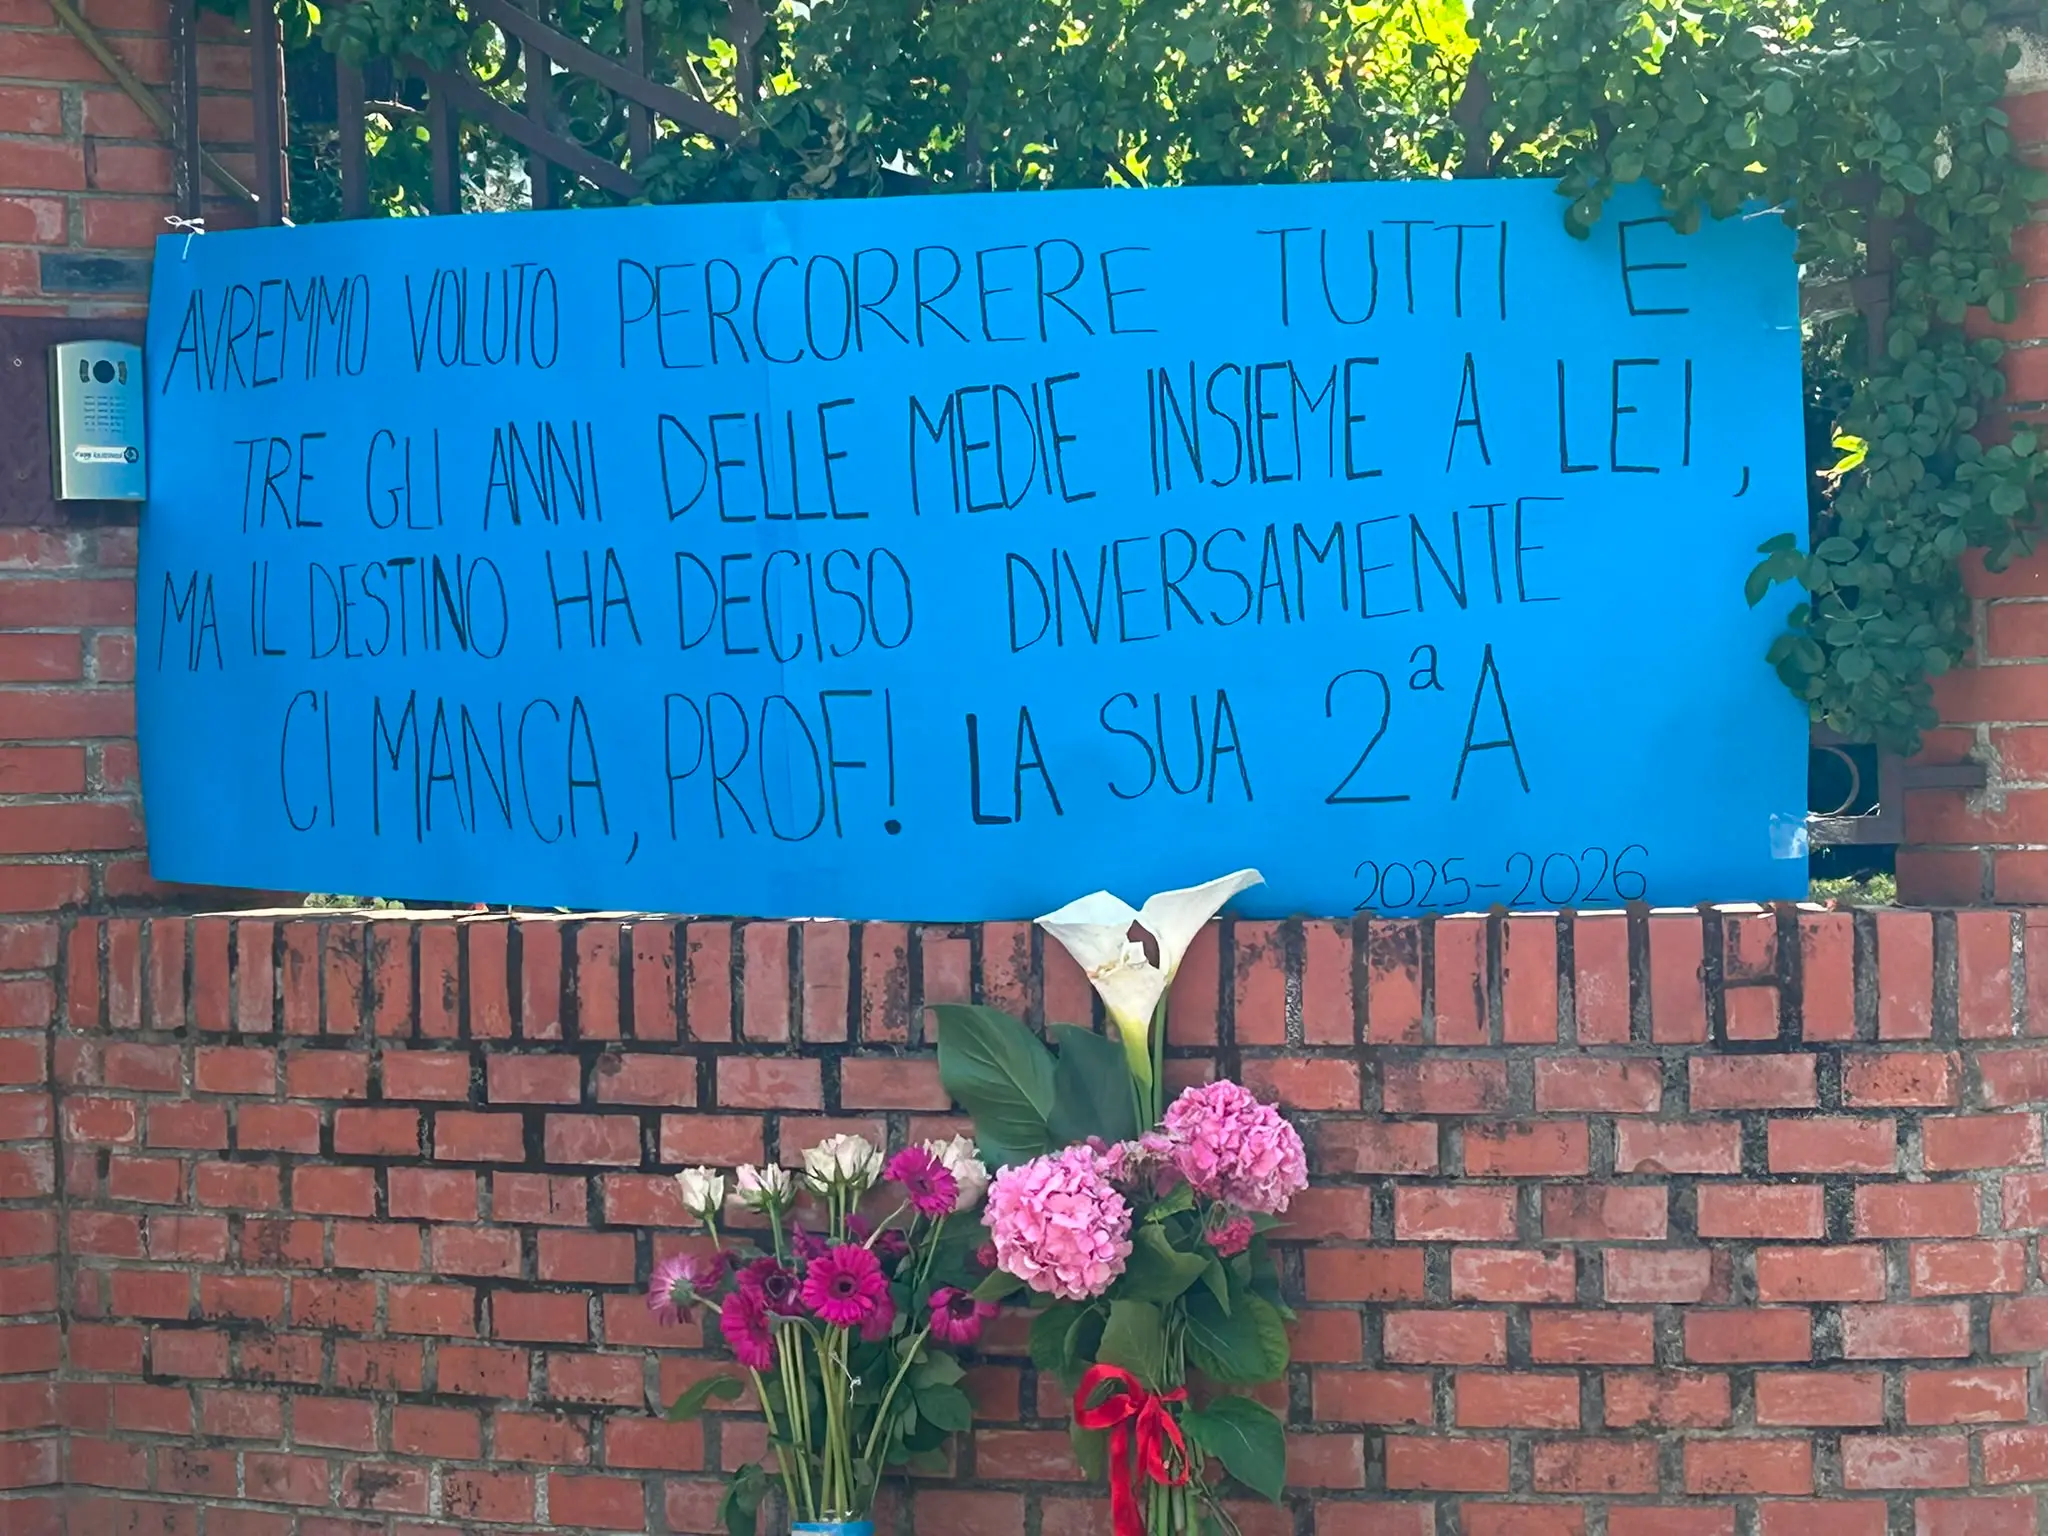 AVREMMO VOLUTO PERCORRERE TUTTI E
TRE GLI ANNI DELLE MEDIE INSIEME A LEI,
MA IL DESTINO HA DECISO DIVERSAMENTE
CI MANCA, PROF! LA SUA 2ª A
2025-2026